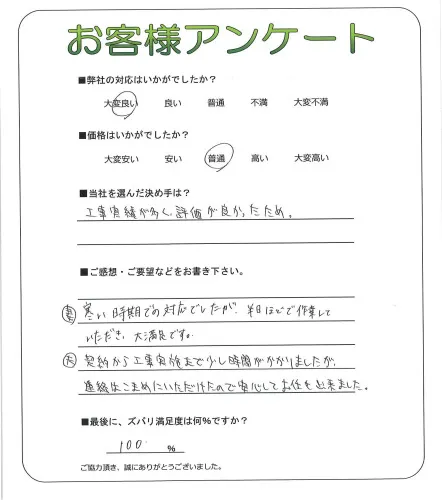 お客様アンケート
■弊社の対応はいかがでしたか?
大変良い 良い 普通 不満 大変不満
■価格はいかがでしたか?
大変安い 安い 普通 高い 大変高い
■当社を選んだ決め手は?
工事実績が多く、評価が良かったため。
■ご感想・ご要望などをお書き下さい。
寒い時期での対応でしたが、半日ほどで作業して
いただき、大満足です。
契約から工事実施まで少し時間がかかりましたが、
連絡はこまめにいただけたので安心してお任せ出来ました。
■最後に、ズバリ満足度は何%ですか?
100 %
ご協力頂き、誠にありがとうございました。